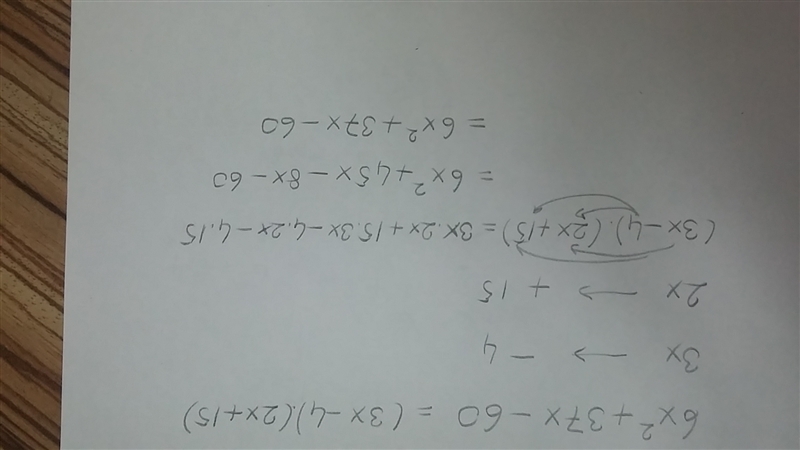 6x² + 37x - 60 = (3x - 4)(.(2x + 15)
3x → - 4
2x → + 15
(3x - 4).(2x + 15) = 3x.2x + 15.3x - 4.2x - 4.15
= 6x² + 45x - 8x - 60
= 6x² + 37x - 60